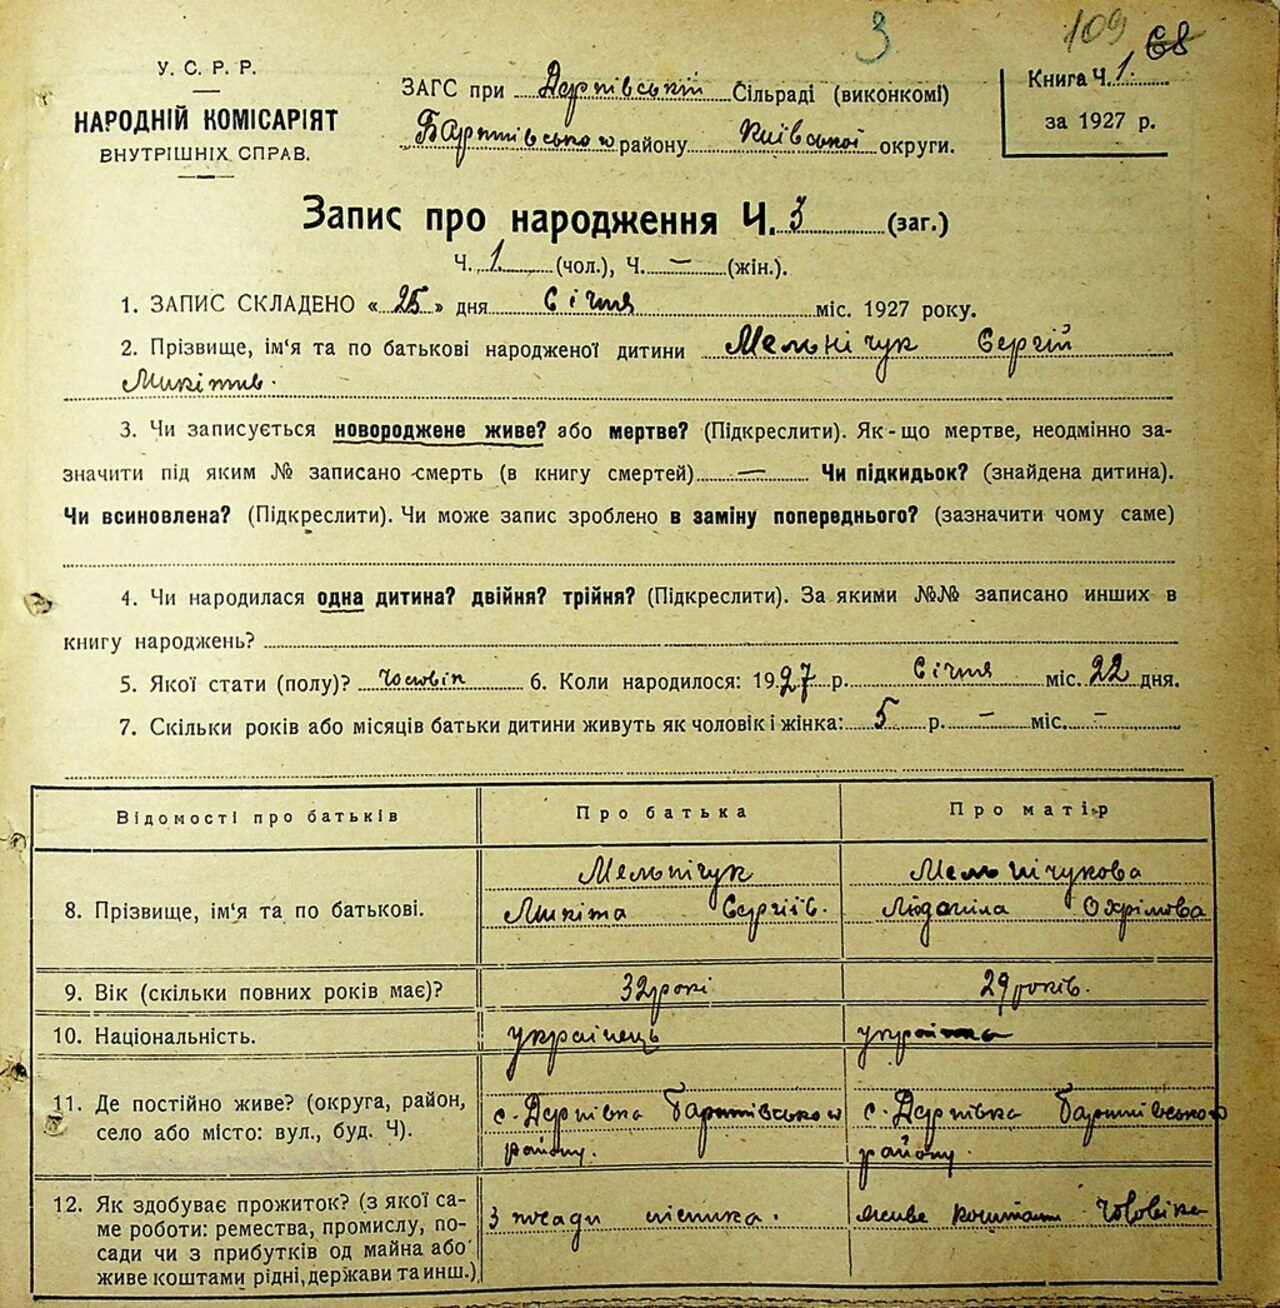 3 109 68
У. С. Р. Р.
НАРОДНІЙ КОМІСАРІЯТ
ВНУТРІШНІХ СПРАВ.
ЗАГС при Дернівській Сільраді (виконкомі)
району Київської округи.
Книга Ч. 1.
за 1927 р.
Запис про народження Ч. 3 (заг.)
Ч. 1 (чол.), Ч. — (жін.).
1. ЗАПИС СКЛАДЕНО « 25 » дня Січня міс. 1927 року.
2. Прізвище, ім'я та по батькові народженої дитини Мельничук Сергій
Микітив.
3. Чи записується новороджене живе? або мертве? (Підкреслити). Як-що мертве, неодмінно за-
значити під яким № записано смерть (в книгу смертей) — Чи підкидьок? (знайдена дитина).
Чи всиновлена? (Підкреслити). Чи може запис зроблено в заміну попереднього? (зазначити чому саме)
4. Чи народилася одна дитина? двійня? трійня? (Підкреслити). За якими №№ записано инших в
книгу народжень?
5. Якої стати (полу)? Чоловік 6. Коли народилося: 1927 р. Січня міс. 22 дня.
7. Скільки років або місяців батьки дитини живуть як чоловік і жінка: 5 р. — міс. —
Відомості про батьків
Про батька
Про матір
8. Прізвище, ім'я та по батькові.
Мельничук
Микита Сергіїв.
Мельничукова
Людмила Охрімова
9. Вік (скільки повних років має)?
32 рокі
29 років.
10. Національність.
українець
українка
11. Де постійно живе? (округа, район,
село або місто: вул., буд. Ч).
с. Дернівка
району.
с. Дернівка
району.
12. Як здобуває прожиток? (з якої са-
ме роботи: ремества, промислу, по-
сади чи з прибутків од майна або
живе коштами рідні, держави та инш.)
З посади
живе коштами чоловіка